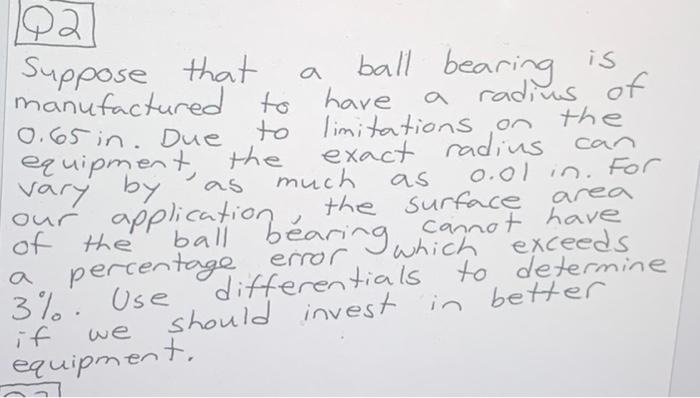 Q2
Suppose that a ball bearing is
manufactured to have a radius of
0.65 in. Due to limitations on the
equipment, the exact radius can
vary by as much as 0.01 in. For
our application, the surface area
of the ball bearing cannot have
a percentage error which exceeds
3%. Use differentials to determine
if we should invest in better
equipment.